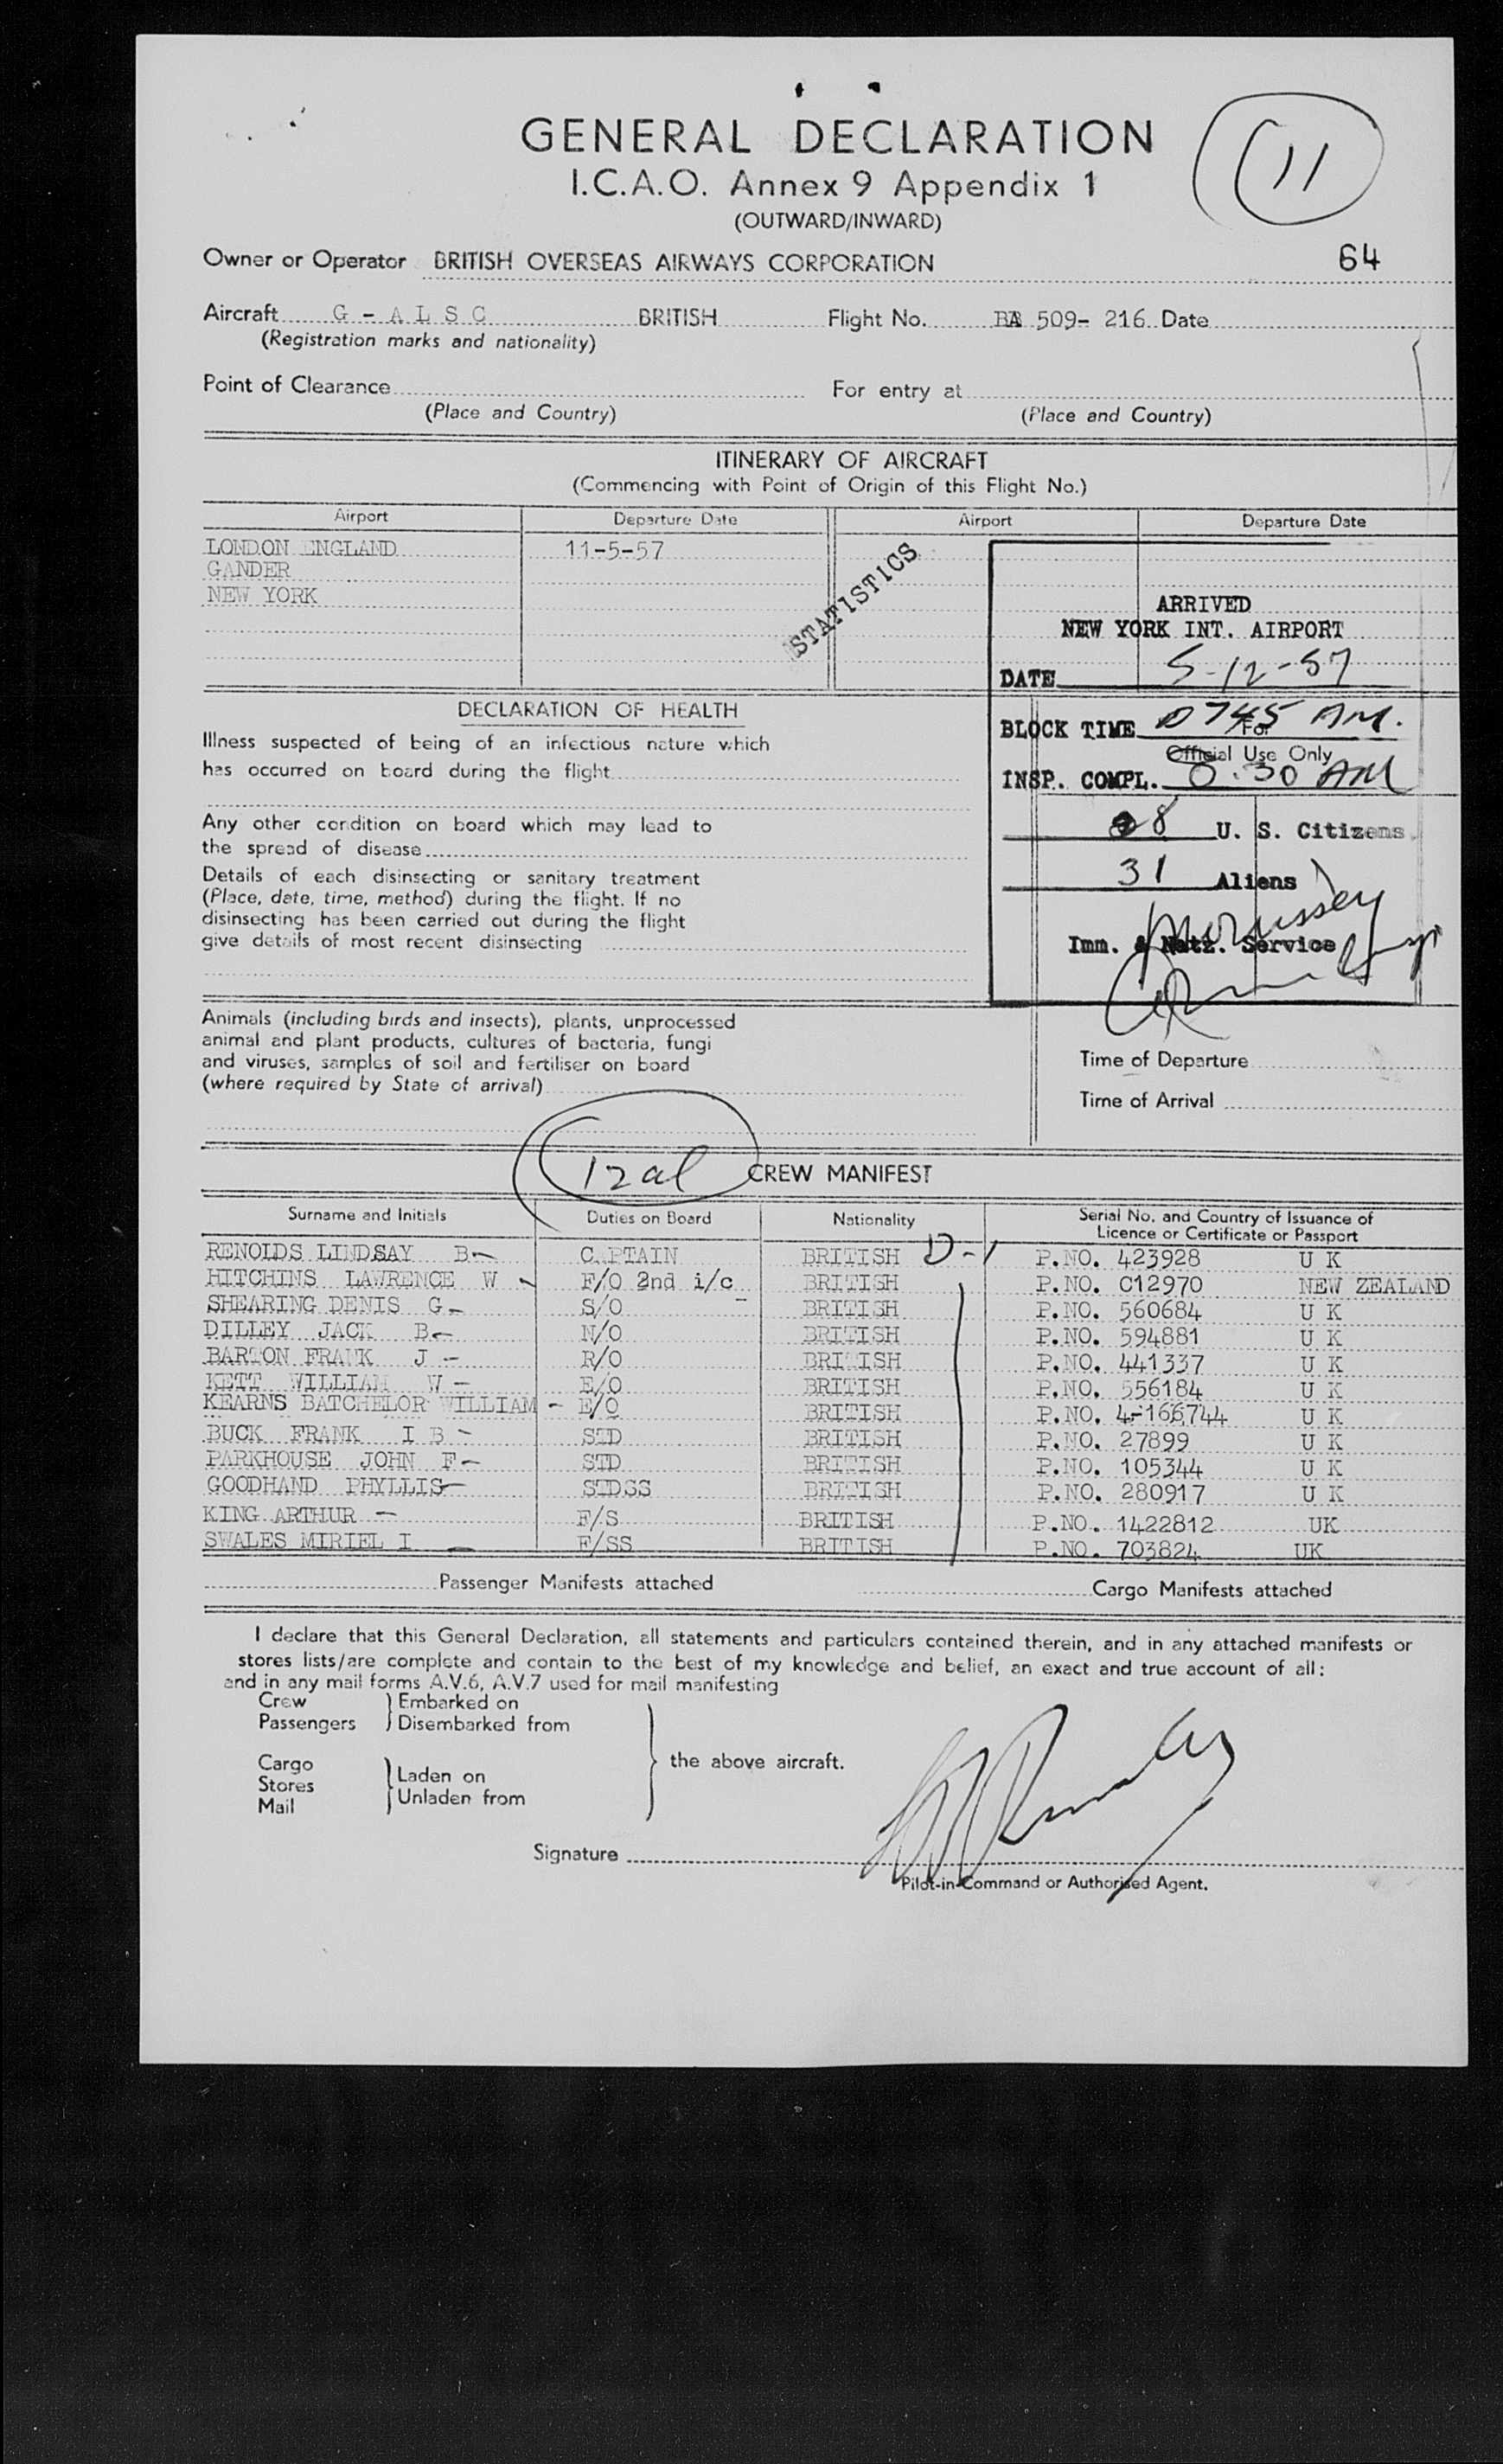 GENERAL DECLARATION
11
I.C.A.O. Annex 9 Appendix 1
(OUTWARD/INWARD)
Owner or Operator BRITISH OVERSEAS AIRWAYS CORPORATION
64
Aircraft G - A L S C BRITISH Flight No. BA 509- 216 Date
(Registration marks and nationality)
Point of Clearance For entry at
(Place and Country) (Place and Country)
ITINERARY OF AIRCRAFT
(Commencing with Point of Origin of this Flight No.)
Airport Departure Date Airport Departure Date
LONDON ENGLAND 11-5-57
GANDER
NEW YORK
STATISTICS
ARRIVED
NEW YORK INT. AIRPORT
DATE 5-12-57
BLOCK TIME 0745 AM.
For
Official Use Only
INSP. COMPL. 8.30 AM
28 U. S. Citizens
31 Aliens
Imm. & Natz. Service
DECLARATION OF HEALTH
Illness suspected of being of an infectious nature which
has occurred on board during the flight
Any other condition on board which may lead to
the spread of disease
Details of each disinsecting or sanitary treatment
(Place, date, time, method) during the flight. If no
disinsecting has been carried out during the flight
give details of most recent disinsecting
Animals (including birds and insects), plants, unprocessed
animal and plant products, cultures of bacteria, fungi
and viruses, samples of soil and fertiliser on board
(where required by State of arrival)
Time of Departure
Time of Arrival
12 al CREW MANIFEST
Surname and Initials Duties on Board Nationality Serial No. and Country of Issuance of
Licence or Certificate or Passport
RENOLDS LINDSAY B CAPTAIN BRITISH D-1 P.NO. 423928 U K
HITCHINS LAWRENCE W F/O 2nd i/c BRITISH P.NO. C12970 NEW ZEALAND
SHEARING DENIS G S/O BRITISH P.NO. 560684 U K
DILLEY JACK B N/O BRITISH P.NO. 594881 U K
BARTON FRANK J R/O BRITISH P.NO. 441337 U K
KETT WILLIAM W E/O BRITISH P.NO. 556184 U K
KEARNS BATCHELOR WILLIAM E/O BRITISH P.NO. 4-166744 U K
BUCK FRANK I B STD BRITISH P.NO. 27899 U K
PARKHOUSE JOHN F STD BRITISH P.NO. 105344 U K
GOODHAND PHYLLIS STDSS BRITISH P.NO. 280917 U K
KING ARTHUR F/S BRITISH P.NO. 1422812 UK
SWALES MIRIEL I F/SS BRITISH P.NO. 703824 UK
Passenger Manifests attached Cargo Manifests attached
I declare that this General Declaration, all statements and particulars contained therein, and in any attached manifests or
stores lists/are complete and contain to the best of my knowledge and belief, an exact and true account of all:
and in any mail forms A.V.6, A.V.7 used for mail manifesting
Crew Embarked on
Passengers Disembarked from
the above aircraft.
Cargo
Stores Laden on
Mail Unladen from
Signature
Pilot-in-Command or Authorised Agent.